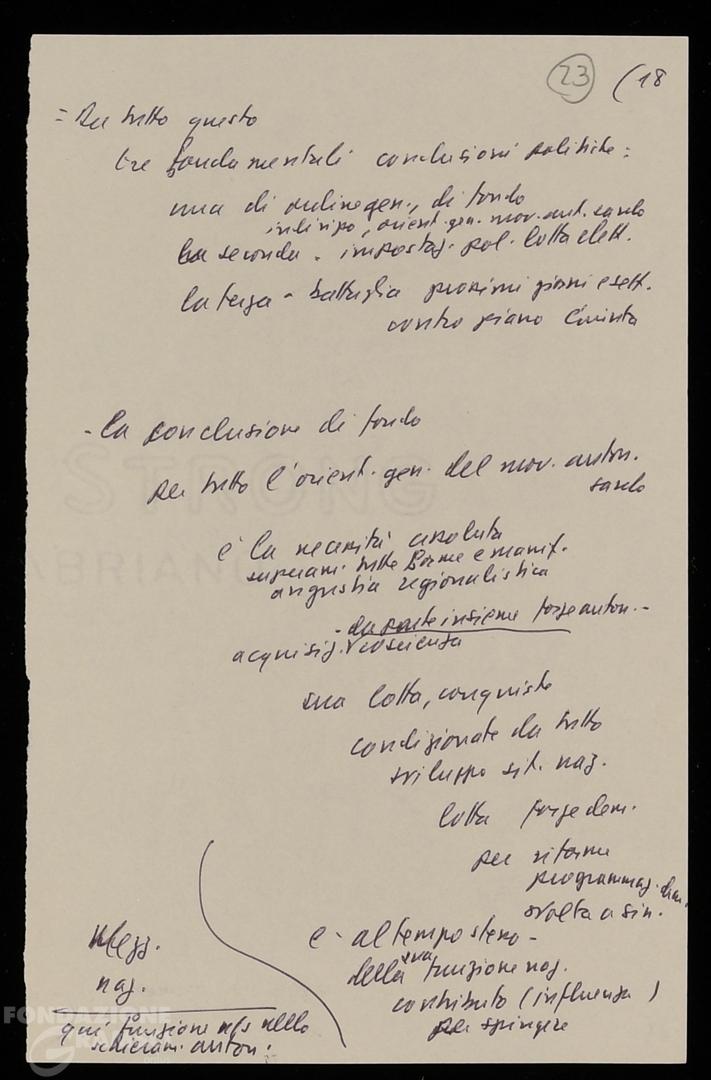 23 (18
= Da tutto questo
tre fondamentali conclusioni politiche:
una di ordine gen., di fondo
indirizzo, orient. gen. mov. aut. sardo
la seconda - impostaz. pol. lotta elett.
la terza - battaglia prossimi giorni e sett.
contro piano Giunta
- la conclusione di fondo
per tutto l'orient. gen. del mov. auton.
sardo
è la necessità assoluta
superam. tutte forme e manif.
angustia regionalistica
- da parte insieme forze auton. -
acquisiz. coscienza
sua lotta, conquiste
condizionate da tutto
sviluppo sit. naz.
lotta forze dem.
per riforme
programmaz. dem.
svolta a sin.
e - al tempo stesso -
della sua funzione naz.
contributo (influenza)
per spingere
Mezz.
naz.
qui funzione ns nello
schieram. auton.
STRONG
FABRIANO
FONDAZIONE
GRAMSCI